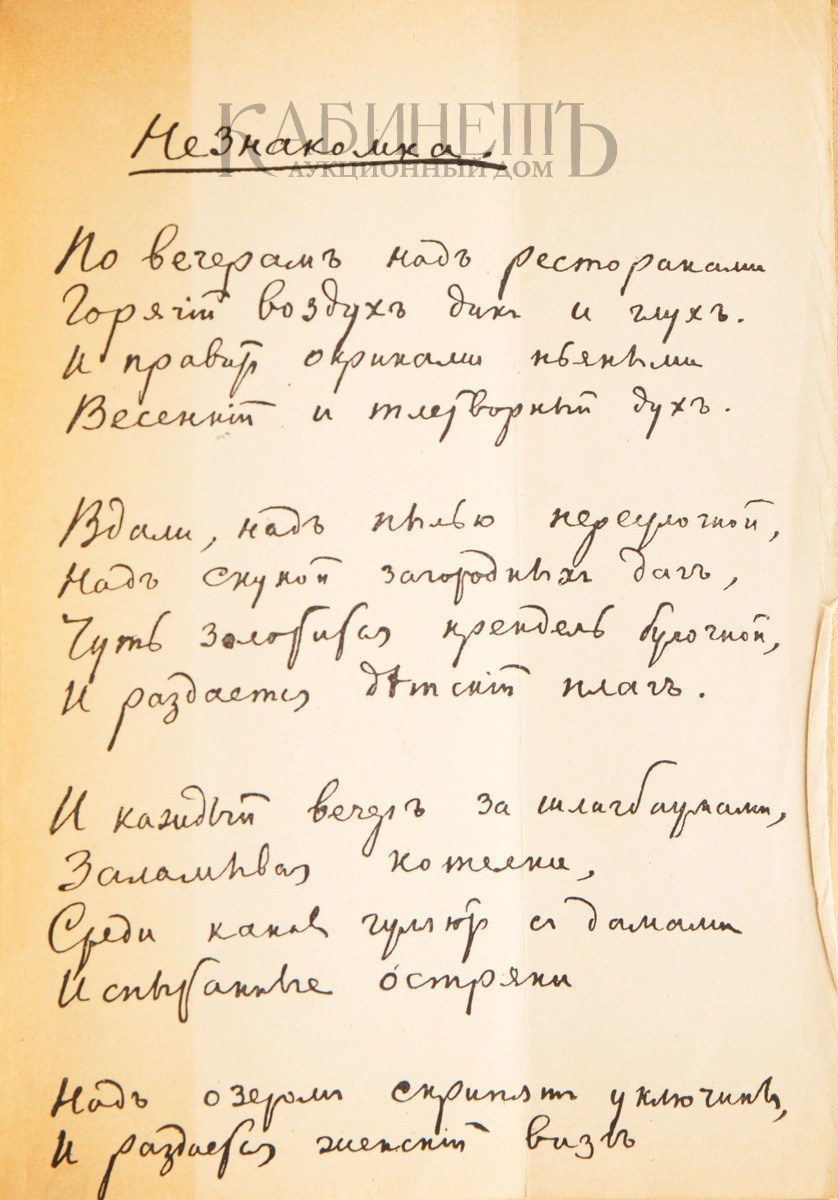 КАБИНЕТЪ
АУКЦИОННЫЙ ДОМ
Незнакомка.
По вечерамъ надъ ресторанами
Горячій воздухъ дикъ и глухъ.
И правитъ окриками пьяными
Весенній и тлетворный духъ.
Вдали, надъ пылью переулочной,
Надъ скукой загородныхъ дачъ,
Чуть золотится крендель булочной,
И раздается дѣтскій плачъ.
И каждый вечеръ за шлагбаумами,
Заламывая котелки,
Среди канавъ гуляютъ съ дамами
Испытанные остряки
Надъ озеромъ скрипятъ уключины,
И раздается женскій визгъ